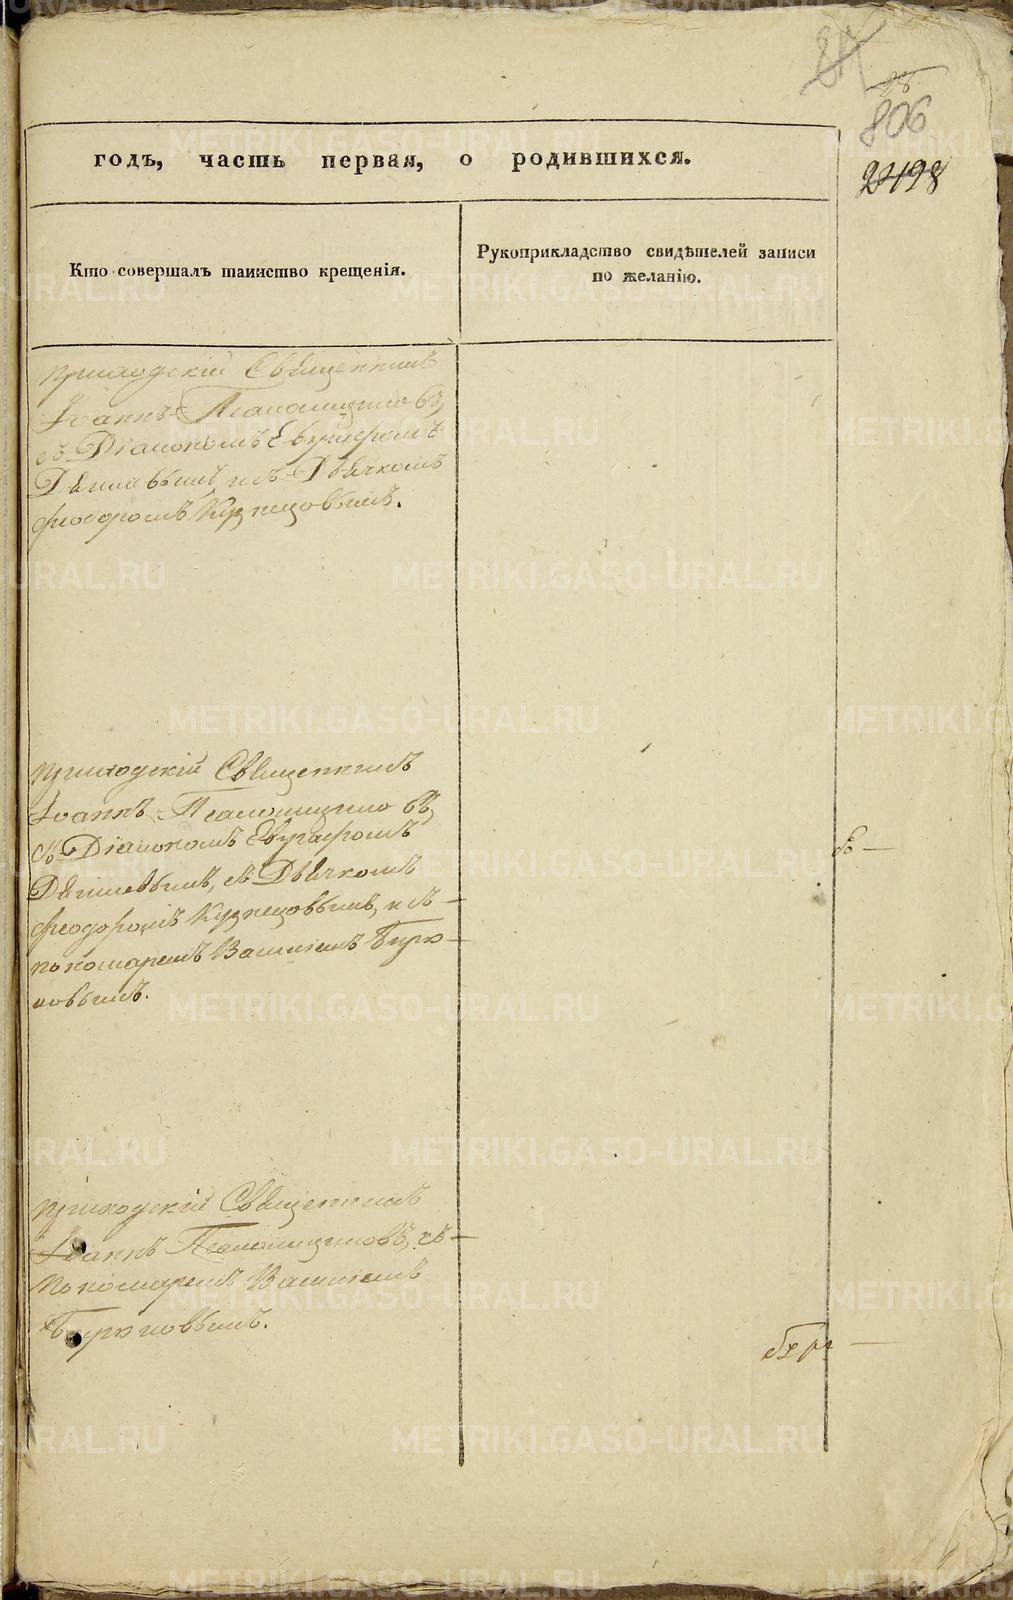 806
годъ, часть первая, о родившихся.
2498
Кто совершалъ таинство крещенія.
Рукоприкладство свидѣтелей записи
по желанію.
приходскій Священникъ
Іоаннъ Псаломщиковъ,
съ Діакономъ Евграфомъ
и съ Дьячкомъ
Феодоромъ Кузнецовымъ.
приходскій Священникъ
Іоаннъ Псаломщиковъ,
съ Діакономъ Евграфомъ
съ Дьячкомъ
Феодоромъ Кузнецовымъ, и съ
пономаремъ Василіемъ Бирю-
ковымъ.
приходскій Священникъ
Іоаннъ Псаломщиковъ, съ
пономаремъ Василіемъ
Бирюковымъ.
METRIKI.GASO-URAL.RU